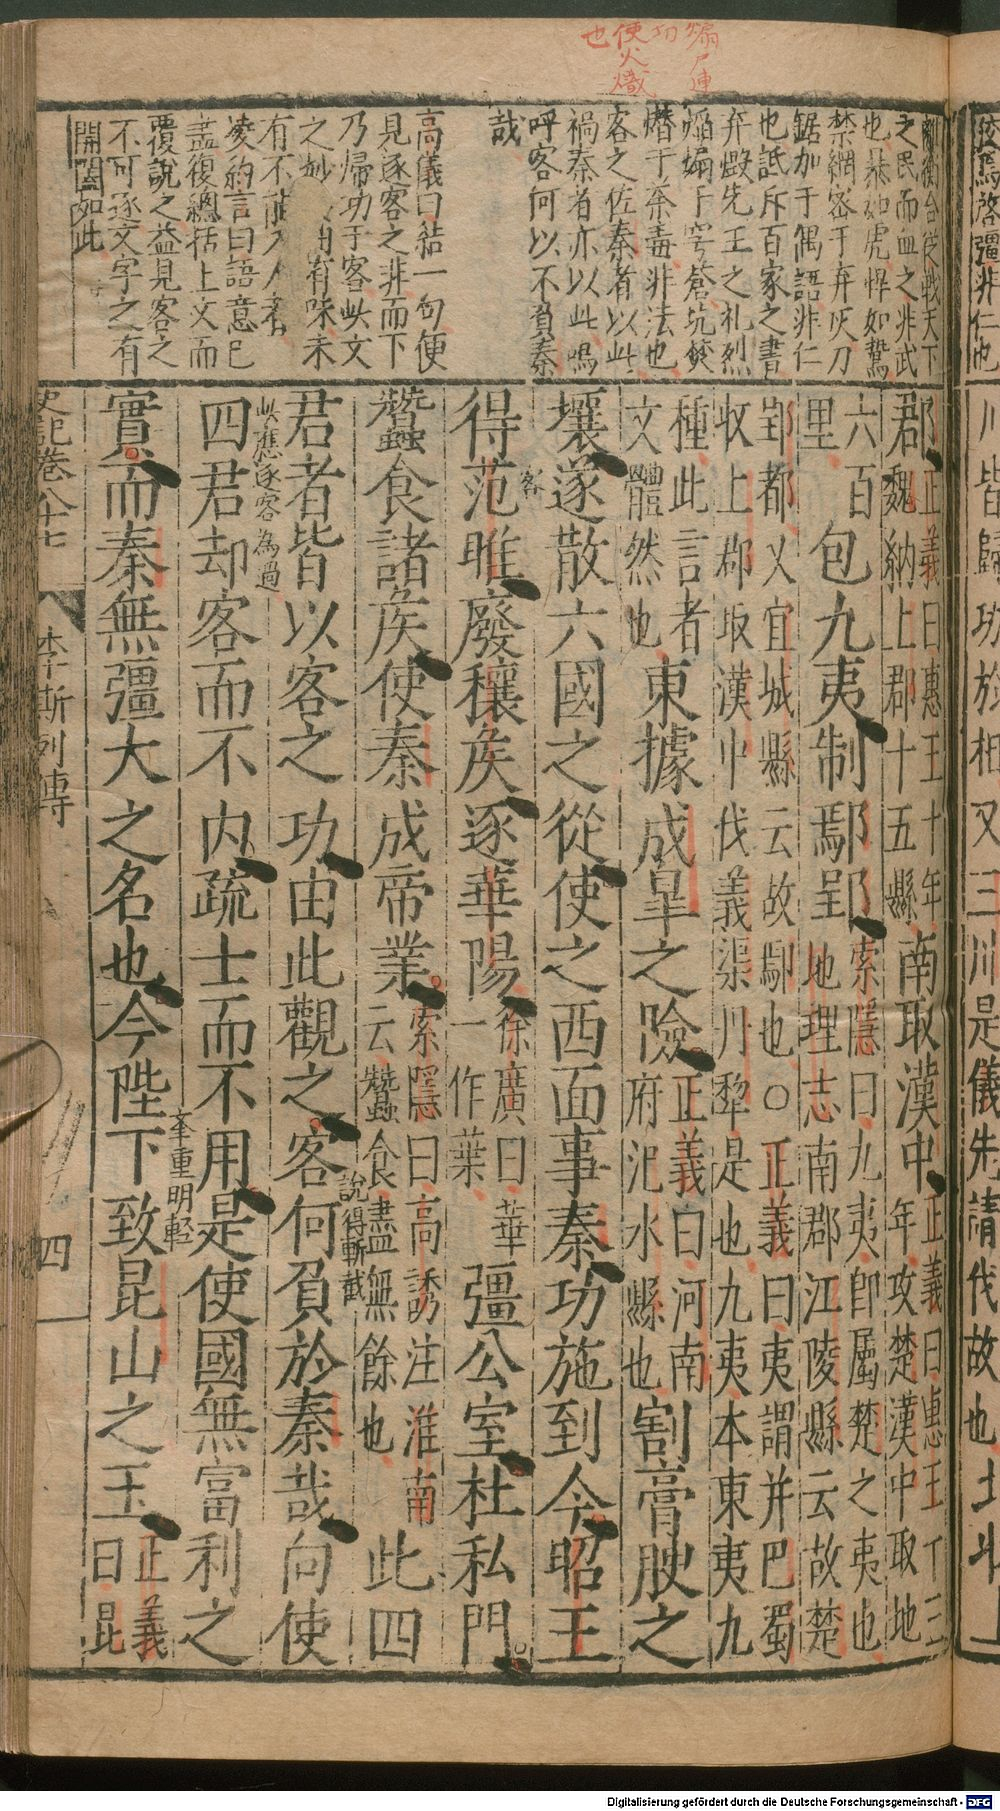 煽尸連
切
使火熾
也
之民而血之非武
也暴如虎悍如鷙
禁網密于弃灰刀
鋸加于偶語非仁
也詆斥百家之書
弃燬先王之札烈
焰煽于穹蒼坑焚
憯于荼毒非法也
客之佐秦者以此
禍秦者亦以此嗚
呼客何以不負秦
哉
高儀曰結一句便
見逐客之非而下
乃歸功于客此文
之妙 有味未
有不
凌約言曰語意已
盡復總括上文而
覆說之益見客之
不可逐文字之有
開闔如此
郡正義曰惠王十年
魏納上郡十五縣南取漢中正義曰惠王十三
年攻楚漢中取地
六百
里包九夷制鄢郢索隱曰九夷卽屬楚之夷也
地理志南郡江陵縣云故楚
郢都又宜城縣云故鄢也○正義曰夷謂并巴蜀
收上郡取漢中伐義渠丹犂是也九夷本東夷九
種此言者
文體然也東據成皐之險正義曰河南
府汜水縣也割膏腴之
壤遂散六國之從使之西面事秦功施到今昭王
得范睢廢穰侯逐華陽徐廣曰華
一作葉彊公室杜私門
客
蠶食諸侯使秦成帝業索隱曰高誘注淮南
云蠶食盡無餘也此四
君者皆以客之功由此觀之客何負於秦哉向使
說得斬截
此應逐客為過
四君却客而不内疏士而不用是使國無富利之
奎重明輕
實而秦無彊大之名也今陛下致昆山之玉正義
曰昆
史記卷八十七
李斯列傳
四
川皆歸功於相又三川是儀先請伐故也北
Digitalisierung gefördert durch die Deutsche Forschungsgemeinschaft - DFG